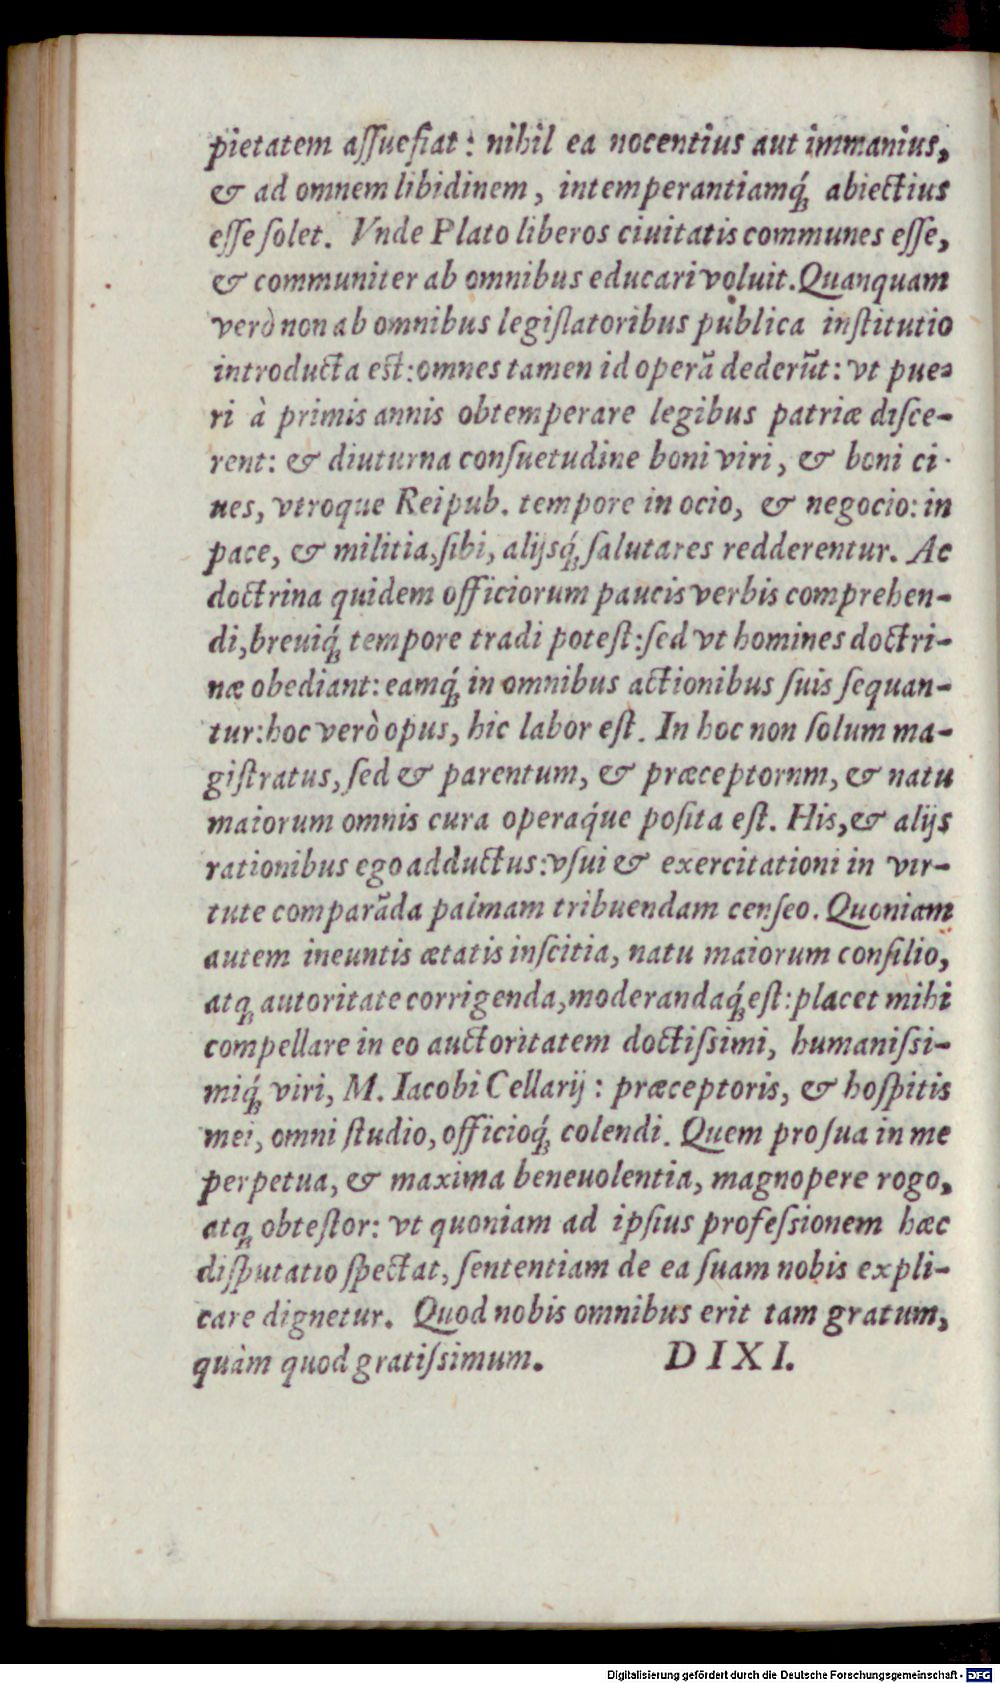 pietatem aſſuefiat: nihil ea nocentius aut immanius,
& ad omnem libidinem, intemperantiamq́; abiectius
eſſe ſolet. Vnde Plato liberos ciuitatis communes eſſe,
& communiter ab omnibus educari voluit. Quanquam
verò non ab omnibus legiſlatoribus publica inſtitutio
introducta eſt: omnes tamen id operã dederũt: vt pue-
ri à primis annis obtemperare legibus patriæ diſce-
rent: & diuturna conſuetudine boni viri, & boni ci-
nes, vtroque Reipub. tempore in ocio, & negocio: in
pace, & militia, ſibi, alijsq́; ſalutares redderentur. Ac
doctrina quidem officiorum paucis verbis comprehen-
di, breuiq́; tempore tradi poteſt: ſed vt homines doctri-
næ obediant: eamq́; in omnibus actionibus ſuis ſequan-
tur: hoc verò opus, hic labor eſt. In hoc non ſolum ma-
giſtratus, ſed & parentum, & præceptornm, & natu
maiorum omnis cura operaq́ue poſita eſt. His, & alijs
rationibus ego adductus: vſui & exercitationi in vir-
tute comparãda palmam tribuendam cenſeo. Quoniam
autem ineuntis ætatis inſcitia, natu maiorum conſilio,
atq; autoritate corrigenda, moderandaq́; eſt: placet mihi
compellare in eo auctoritatem doctiſsimi, humaniſsi-
miq́; viri, M. Iacobi Cellarij: præceptoris, & hoſpitis
mei, omni ſtudio, officioq́; colendi. Quem pro ſua in me
perpetua, & maxima beneuolentia, magnopere rogo,
atq; obteſtor: vt quoniam ad ipſius profeſsionem hæc
diſputatio ſpectat, ſententiam de ea ſuam nobis expli-
care dignetur. Quod nobis omnibus erit tam gratum,
quàm quod gratiſsimum. DIXI.
Digitalisierung gefördert durch die Deutsche Forschungsgemeinschaft - DFG